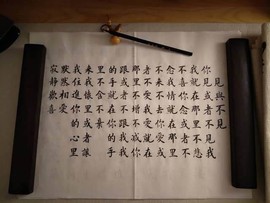 見與不見
你見或者不見我
我就在那里不悲
不喜你念或者不
念我情就在那里
不来不去你愛或
者不愛我愛就在
那里不增不减你
跟或者不跟我我
的手就在你的手
里不捨不棄
来我的懷里或者讓
我住進你的心里
默然相愛
寂靜歡喜